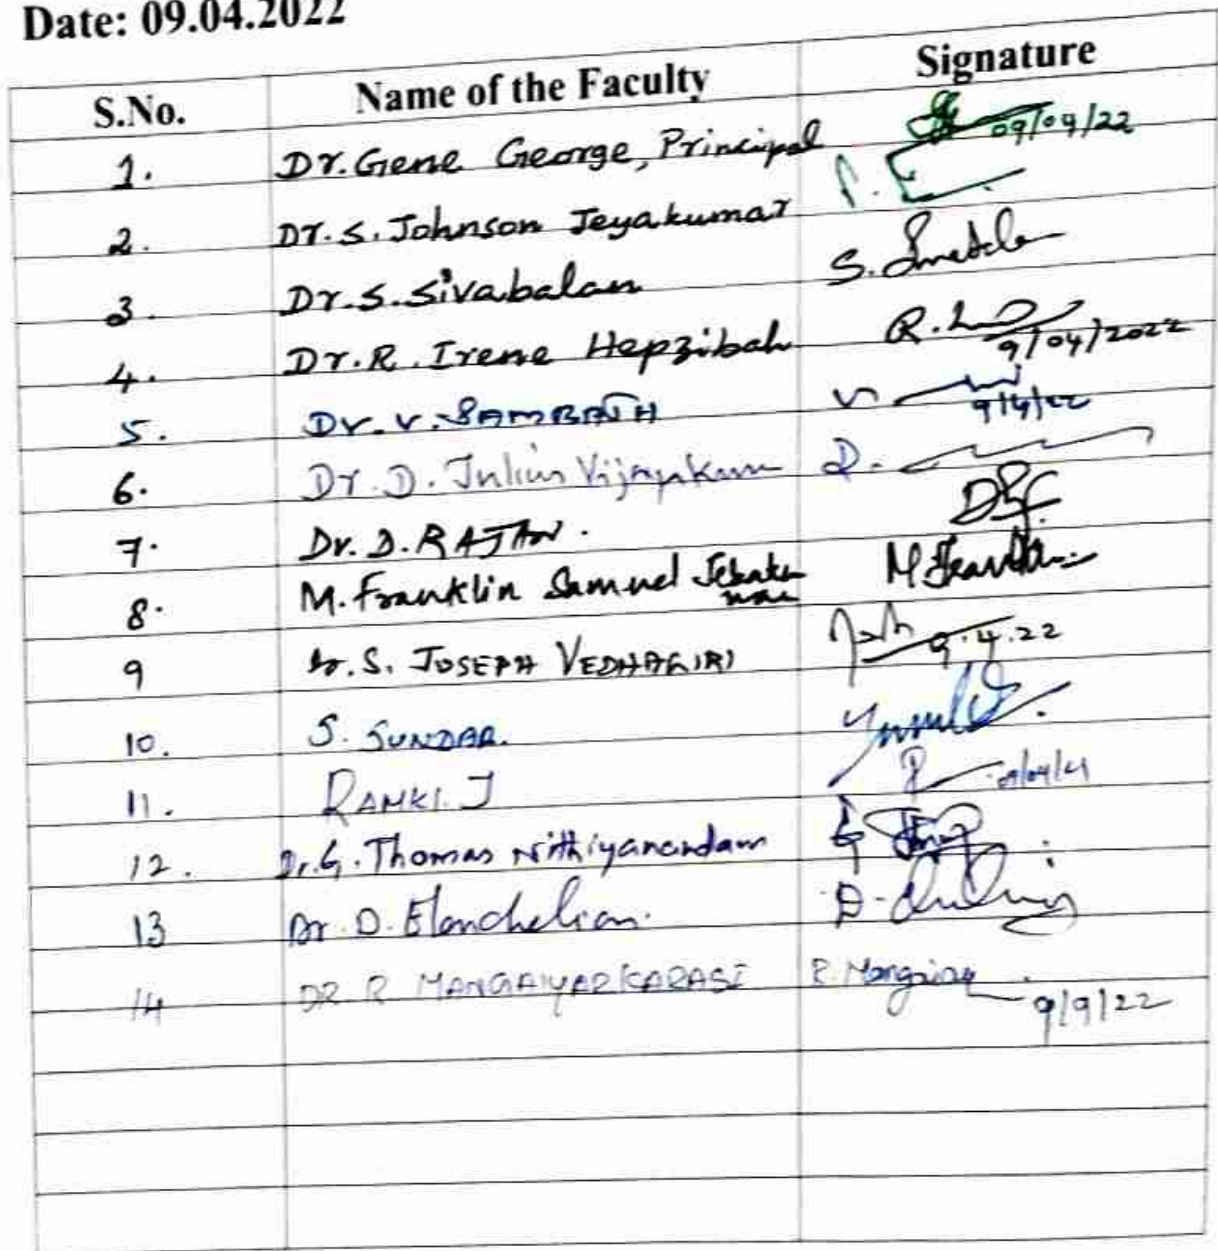 Date: 09.04.2022
S.No. Name of the Faculty Signature
1. Dr. Gene George, Principal 09/04/22
2. Dr. S. Johnson Jeyakumar
3. Dr. S. Sivabalan S.
4. Dr. R. Irene Hepzibah R. 9/04/2022
5. Dr. V. SAMBATH V 9/4/22
6. Dr. D. Julius Vijayakum D.
7. Dr. D. RAJAN.
8. M. Franklin Samuel Jebaku
mar
9 Dr. S. JOSEPH VEDHAGIRI 9.4.22
10. S. SUNDAR.
11. RAMKI. J
12. Dr. G. Thomas Nithiyanandam
13 Dr. D. Elanchelian. D.
14 DR R MANGAIYARKARASI R. Mangaiy 9/9/22